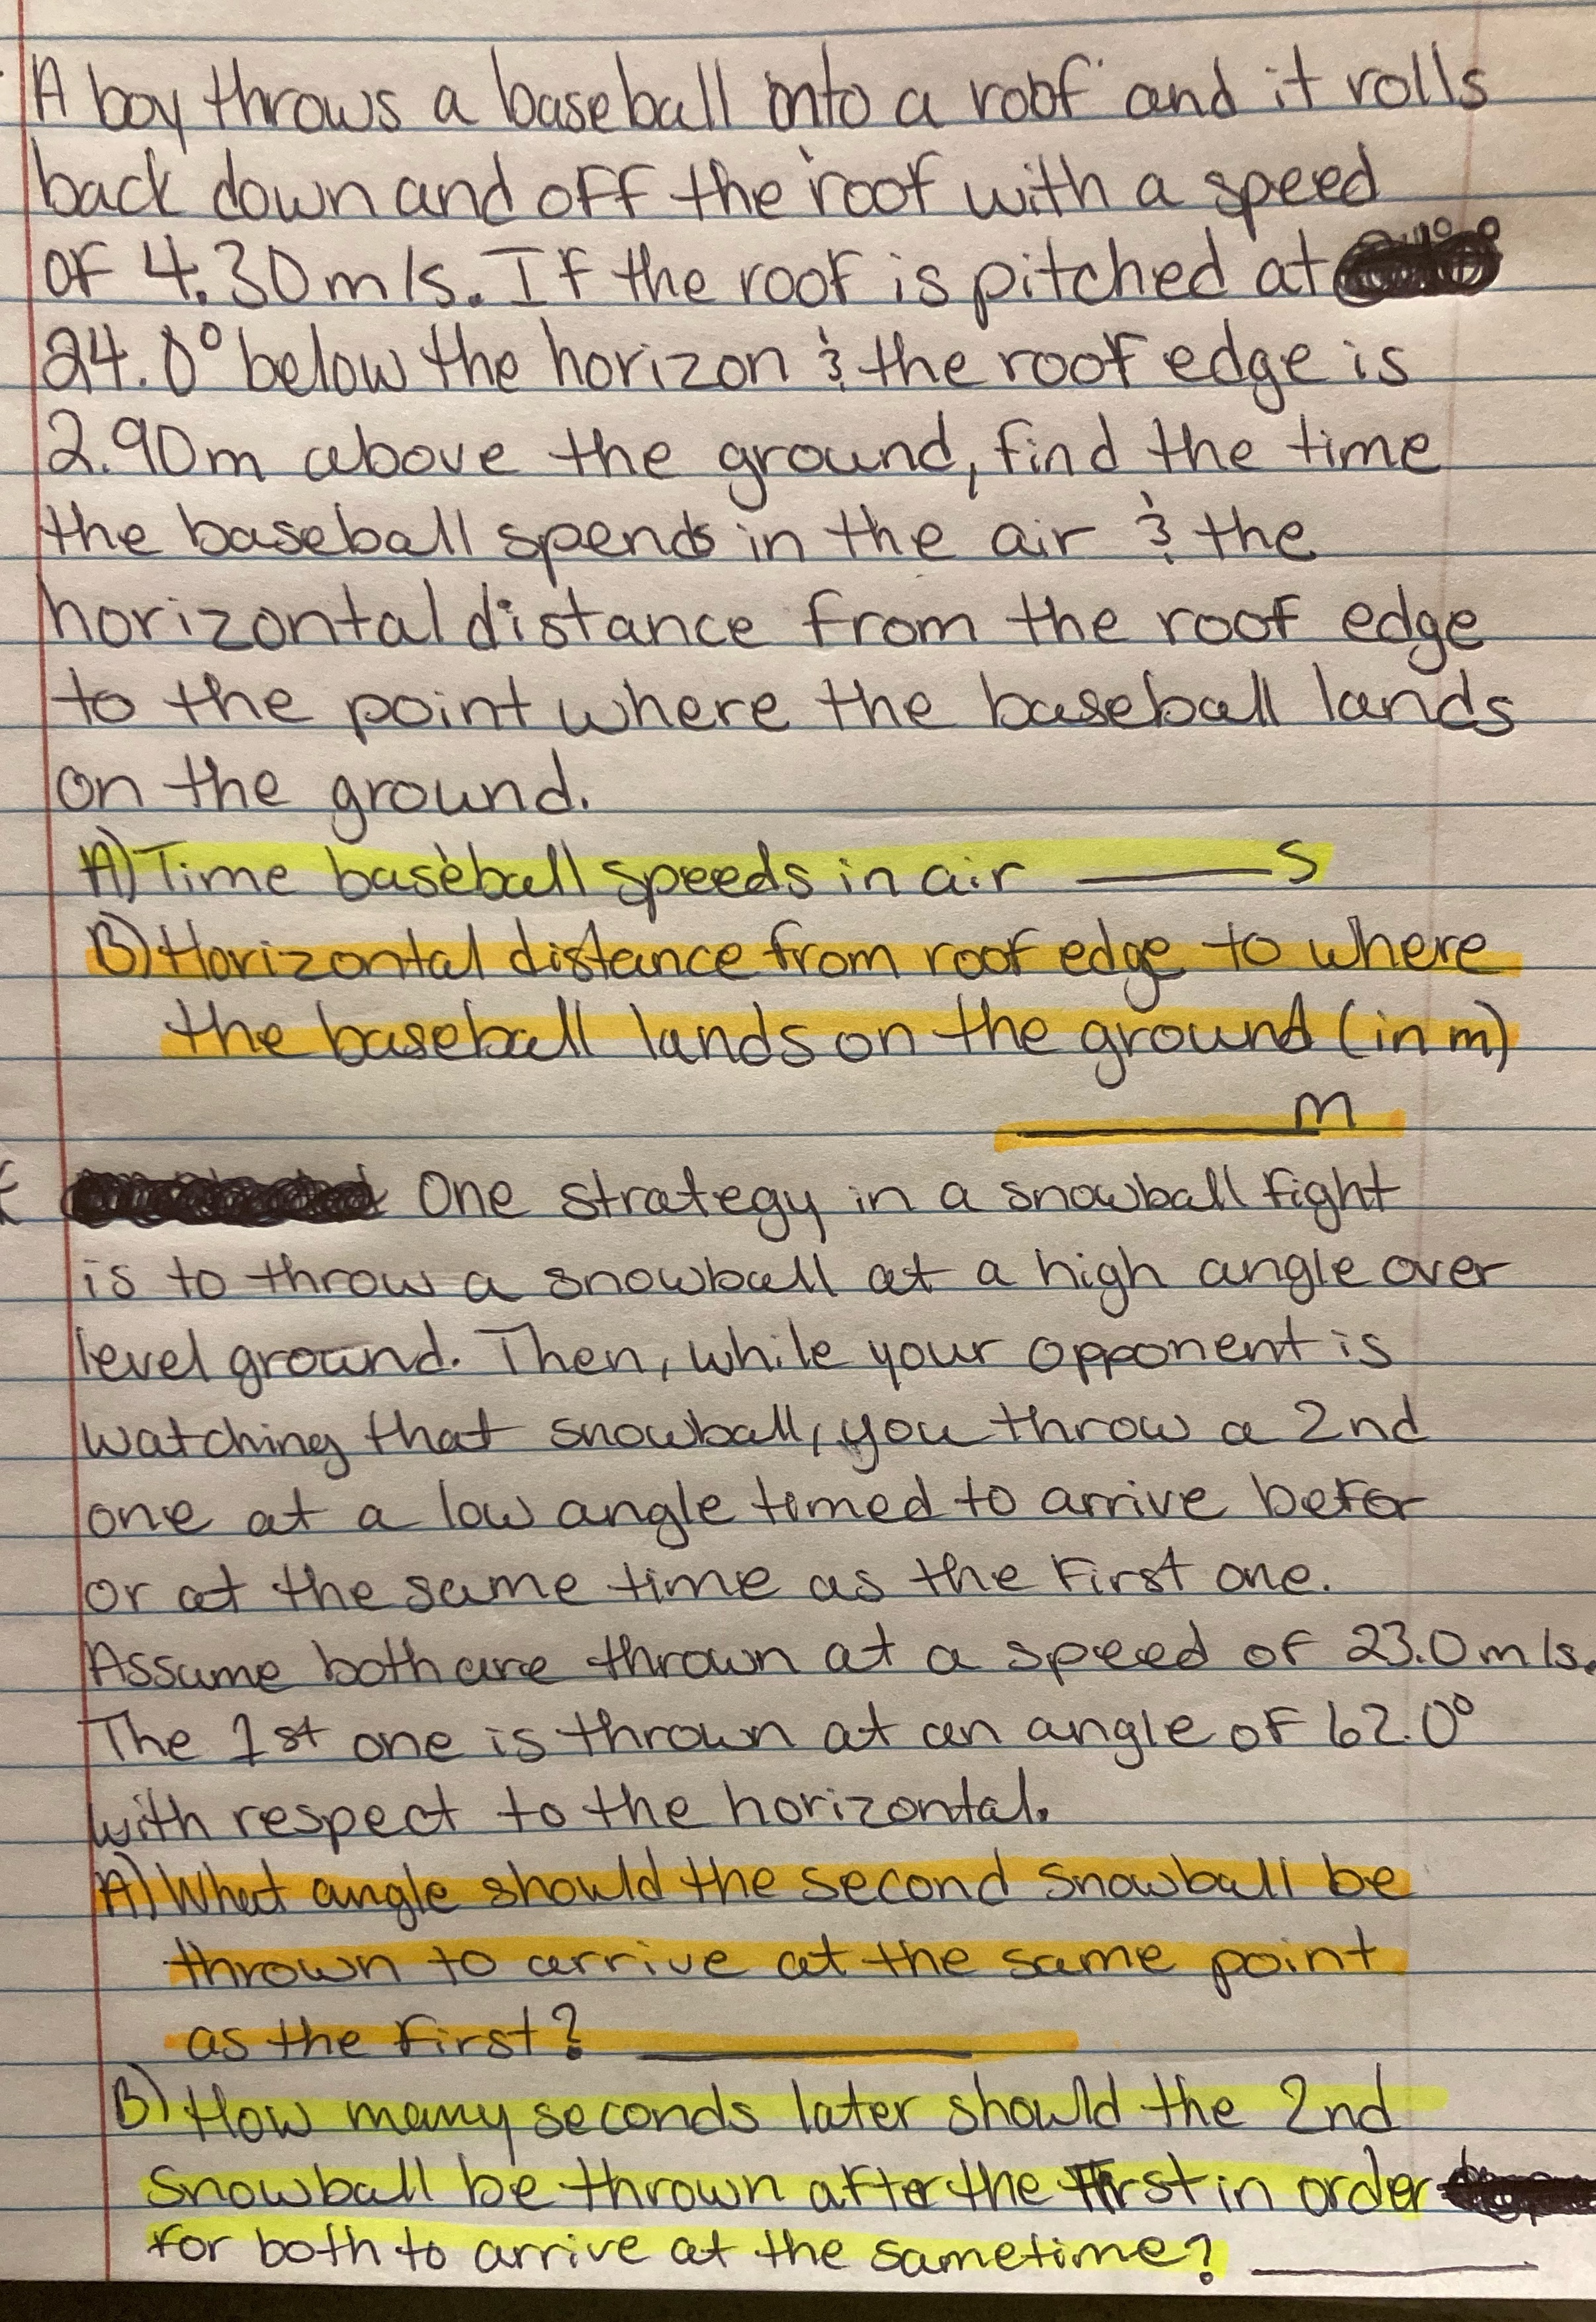 A boy throws a baseball onto a roof and it rolls
back down and off the roof with a speed
of 4.30 m/s. If the roof is pitched at
24.0° below the horizon & the roof edge is
2.90m above the ground, find the time
the baseball spends in the air & the
horizontal distance from the roof edge
to the point where the baseball lands
on the ground.
A) Time baseball speeds in air ______ s
B) Horizontal distance from roof edge to where
the baseball lands on the ground (in m)
______ m
One strategy in a snowball fight
is to throw a snowball at a high angle over
level ground. Then, while your opponent is
watching that snowball, you throw a 2nd
one at a low angle timed to arrive befor
or at the same time as the first one.
Assume both are thrown at a speed of 23.0 m/s.
The 1st one is thrown at an angle of 62.0°
with respect to the horizontal.
A) What angle should the second snowball be
thrown to arrive at the same point
as the first? ______
B) How many seconds later should the 2nd
snowball be thrown after the first in order
for both to arrive at the sametime? ______